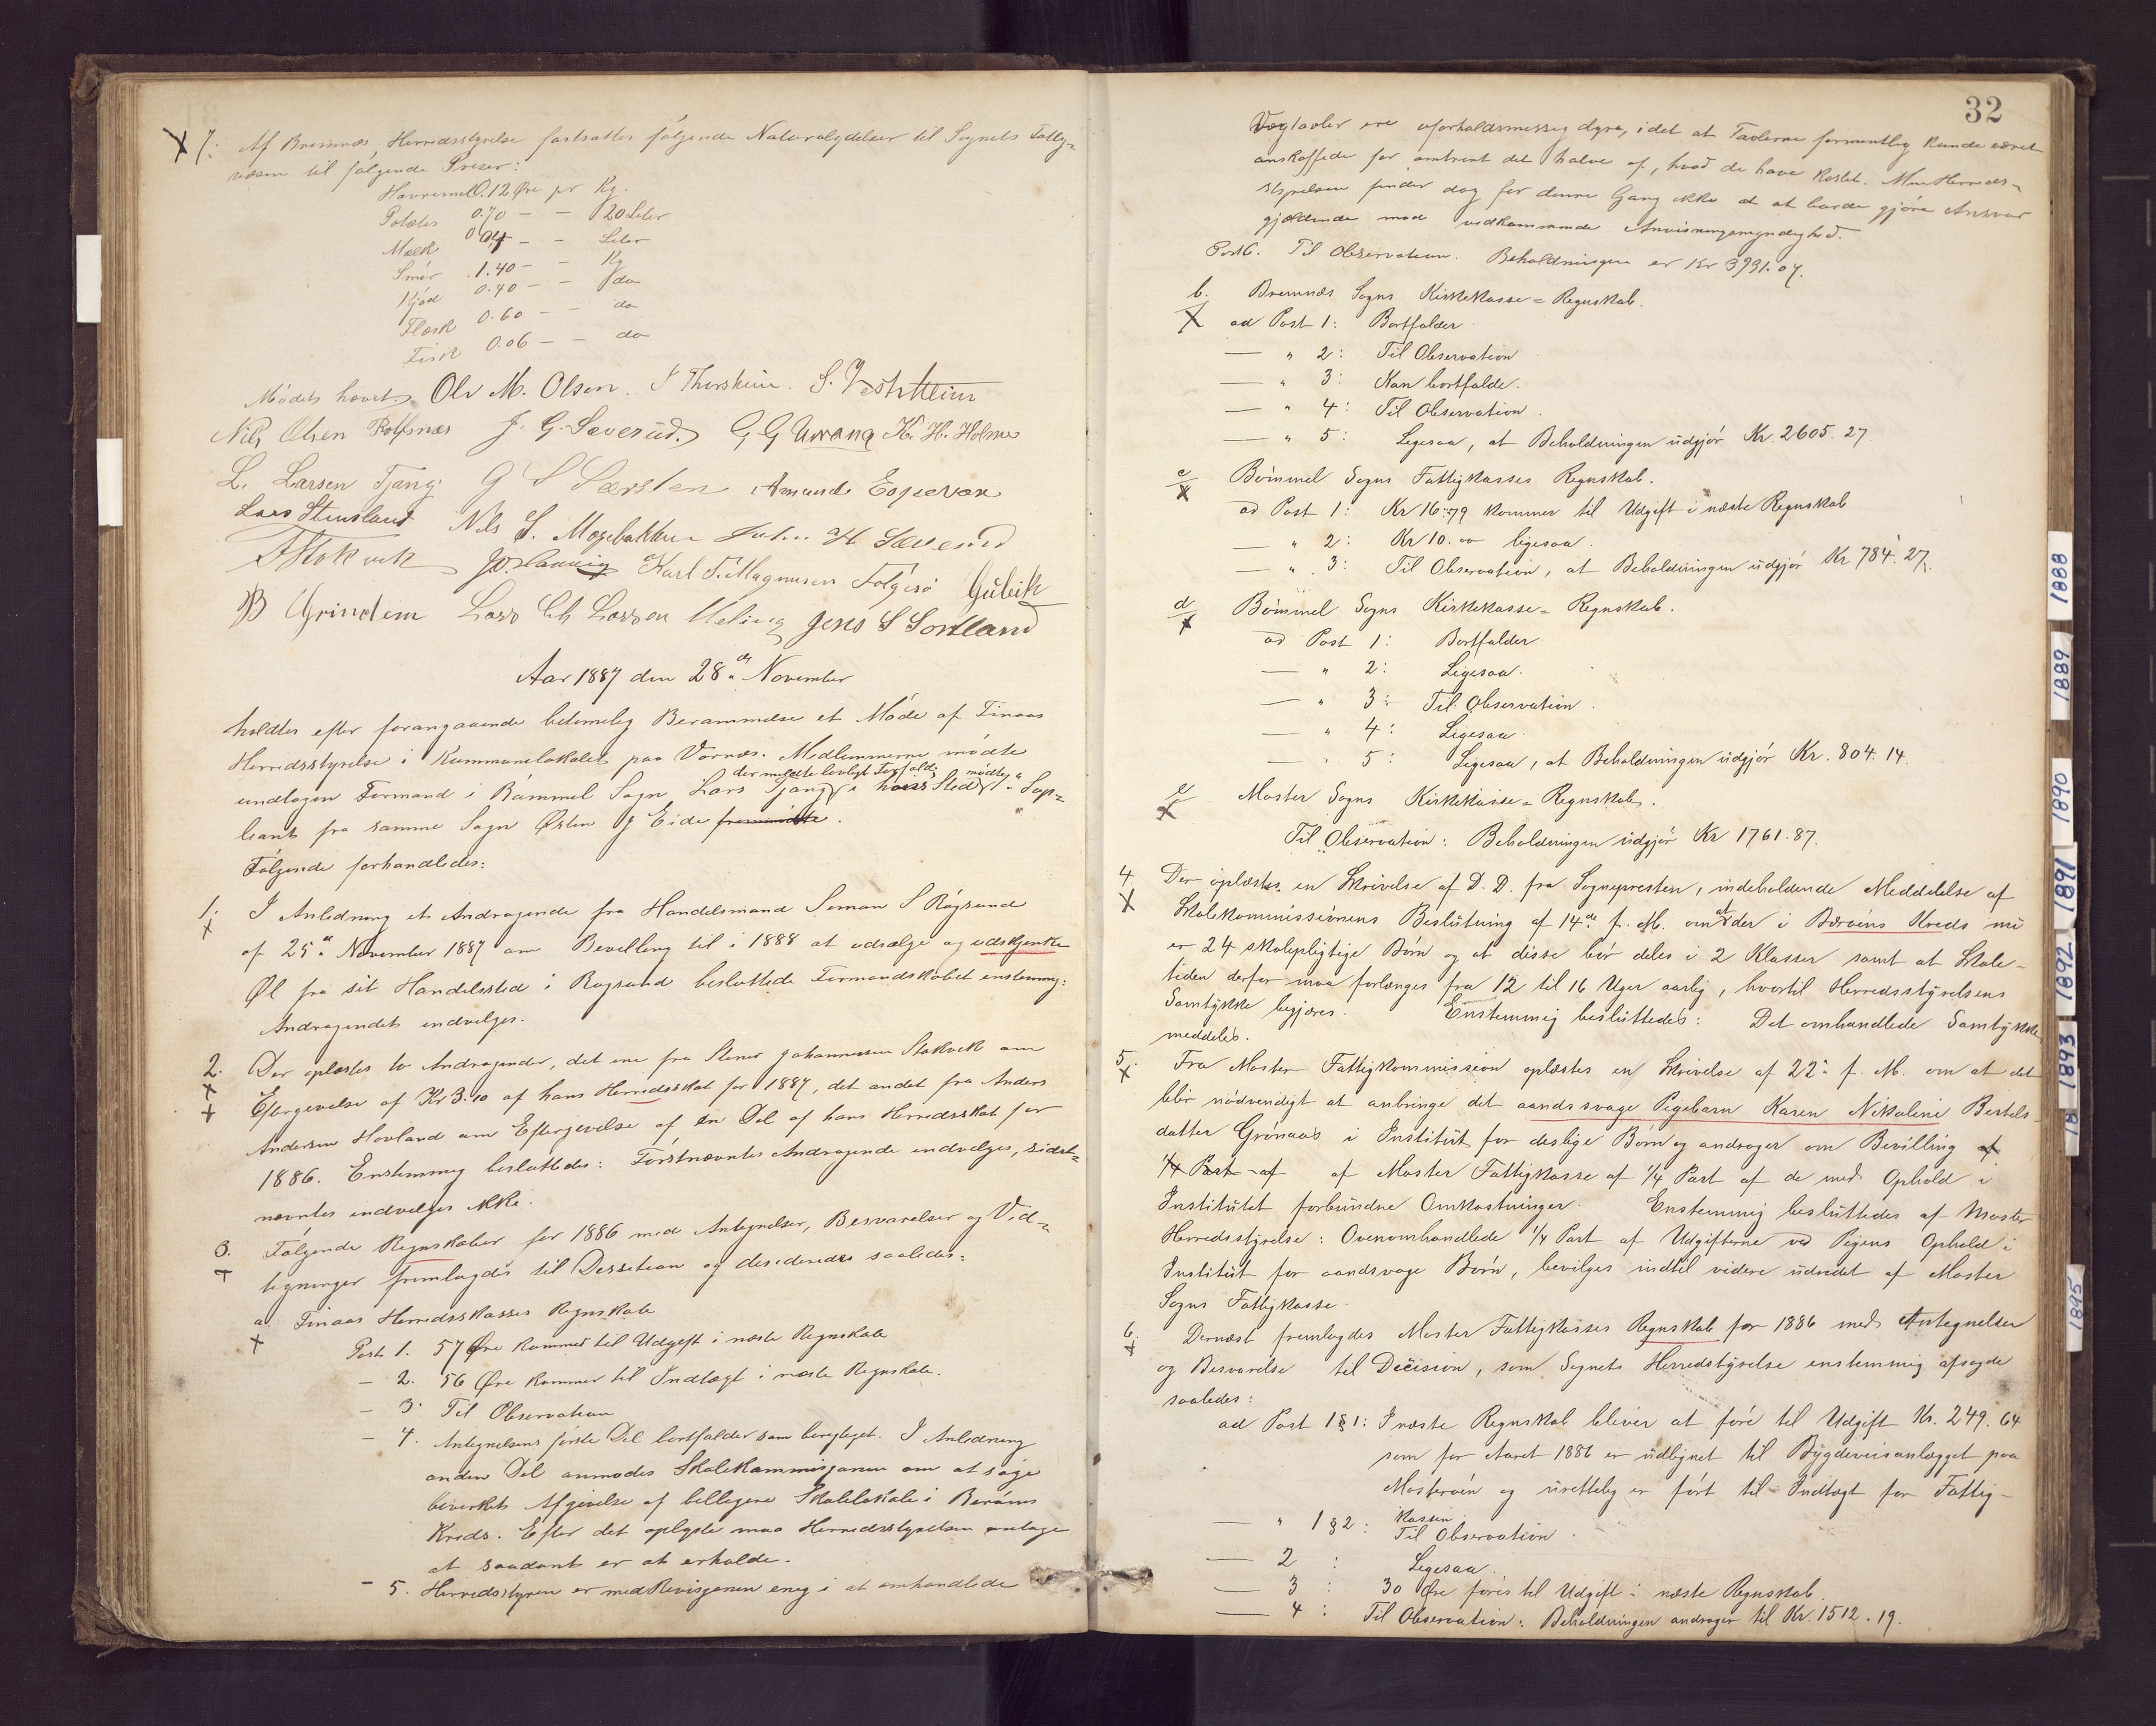 X 7: Af Bremnæs Herredsstyrelse fastsattes følgende Naturalydelser til Sognets Fattig=
væsen til følgende Priser:
Havremel 0.12 Øre pr Kg.
Potætes 0.70 — — 20 Liter
Mælk 0.04 — — Liter
Smør 1.40 — — Kg
Kjød 0.40 — — do
Flæsk 0.60 — — do
Fisk 0.06 — — do
Mødet hævet. Ole M. Olsen. S. Vestrheim
Nils Olsen Rolfsnæs J. G. Sæverud. G G Urrang K. H. Holme
L. Larsen Tjang. G S Særsten Amund Espevær
Lars Stensland Nils S. Mogebakken John H Sæverud
A Stokvik Karl T. Magnusen Folgerø Gubik
B Grindem Lars Ch Larsen Meling Jens S Sortland
Aar 1887 den 28de November
holdtes efter forangaaende betimelig Berammelse et Møde af Finaas
Herredsstyrelse i Kummunelokalet paa Vornæs. Medlemmerne mødte
der meldte lovligt Forfald. mødte
undtagen Formand i Bømmel Sogn Lars Tjang i hvis Sted 1ste Sup=
leant fra samme Sogn Østen J Eide fremmødte.
Følgende forhandledes:
1. X I Anledning et Andragende fra Handelsmand Simon S Røgsund
af 25de November 1887 om Bevilling til i 1888 at udsælge og udskjenke
Øl fra sit Handelssted i Røgsund besluttede Formandskabet enstemmig:
Andragendet indvilges.
2. X X Der oplæstes to Andragender, det ene fra Stener Johannessen Stokvik om
Eftergivelse af Kr 3.10 af hans Herredsskat for 1887, det andet fra Anders
Andersen Hovland om Eftergivelse af en Del af hans Herredsskat for
1886. Enstemmig besluttedes: Førstnævntes Andragende indvilges, sidst=
nævntes indvilges ikke.
3. X Følgende Regnskaber for 1886 med Antegnelser, Besvarelser og Ved=
tegninger fremlagdes til Dessetion og desideredes saaledes:
a. X Finaas Herredskasses Regnskab
Post 1. 57 Øre kommer til Udgift i næste Regnskab
— 2. 56 Øre kommer til Indtægt i næste Regnskab.
— 3. Til Observation
— 4. Antegnelsens første Del bortfalder som berigtiget. I Anledning
anden Del anmodes Skolekommisjonen om at søge
bevirket Afgivelse af billigere Skolelokale i Berøens
Kreds. Efter det oplyste maa Herredsstyrelsen antage
at saadant er at erholde.
— 5. Herredsstyren er med Revisjonen enig i at omhandlede
32
Vægtavler ere uforholdsmessig dyre, idet at Tavlerne formentlig kunde været
anskaffede for omtrent det halve af, hvad de have kostet. Men Herreds=
styrelsen finder dog for denne Gang ikke at burde gjøre Ansvar
gjældende mod vedkommende Anvisningsmyndighed.
Post 6. Til Observation. Beholdningen er Kr 3991.07.
b. X Bremnæs Sogns Kirkekasse=Regnskab.
ad Post 1: Bortfalder
— " 2: Til Observation
— " 3: Kan bortfalde.
— " 4: Til Observation.
— " 5: Ligesaa, at Beholdningen udgjør Kr. 2605.27
c X Bømmel Sogns Fattigkasses Regnskab.
ad Post 1: Kr 16.79 kommer til Udgift i næste Regnskab
— " 2: Kr 10.00 ligesaa.
— " 3: Til Observation, at Beholdningen udgjør Kr 784.27.
d X Bømmel Sogns Kirkekasse=Regnskab.
ad Post 1: Bortfalder
— " 2: Ligesaa.
— " 3: Til Observation.
— " 4: Ligesaa.
— " 5: Ligesaa, at Beholdningen udgjør Kr. 804.14.
e X Moster Sogns Kirkekasse=Regnskab.
Til Observation: Beholdningen udgjør Kr 1761.87.
4 X Der oplæstes en Skrivelse af D. D. fra Sognepresten, indeholdende Meddelelse af
Skolekommissionens Beslutning af 14de f. M. om at der i Berøens Kreds nu
er 24 skolepligtige Børn og at disse bør deles i 2 Klasser samt at Skole-
tiden derfor maa forlænges fra 12 til 16 Uger aarlig, hvortil Herredsstyrelsens
Samtykke begjæres. Enstemmig besluttedes: Det omhandlede Samtykke
meddeles.
5. X Fra Moster Fattigkommission oplæstes en Skrivelse af 22de f. M. om at det
blir nødvendigt at anbringe det aandssvage Pigebarn Karen Nikoline Bertels-
datter Grønaas i Institut for deslige Børn og andrager om Bevilling af
1/4 Part af af Moster Fattigkasse af 1/4 Part af de med Ophold i
Institutet forbundne Omkostninger. Enstemmig besluttedes af Moster
Herredsstyrelse: Ovenomhandlede 1/4 Part af Udgifterne ved Pigens Ophold i
Institut for aandsvage Børn, bevilges indtil videre udredet af Moster
Sogns Fattigkasse.
6. X Dernæst fremlagdes Moster Fattigkasses Regnskab for 1886 med Antegnelser
og Besvarelse til Decision, som Sognets Herredstyrelse enstemmig afsagde
saaledes:
ad Post 1 § 1: I næste Regnskab bliver at føre til Udgift Kr. 249.64
som for Aaret 1886 er udlignet til Bygdeveisanlægget paa
Mosterøen og urettelig er ført til Indtægt for Fattig-
kassen.
— " 1 § 2: Til Observation.
— 2 : Ligesaa.
— 3 : 30 Øre føres til Udgift i næste Regnskab.
— 4 : Til Observation: Beholdningen andrager til Kr. 1512.19.
1888
1889
1890
1891
1892
1893
18
1895